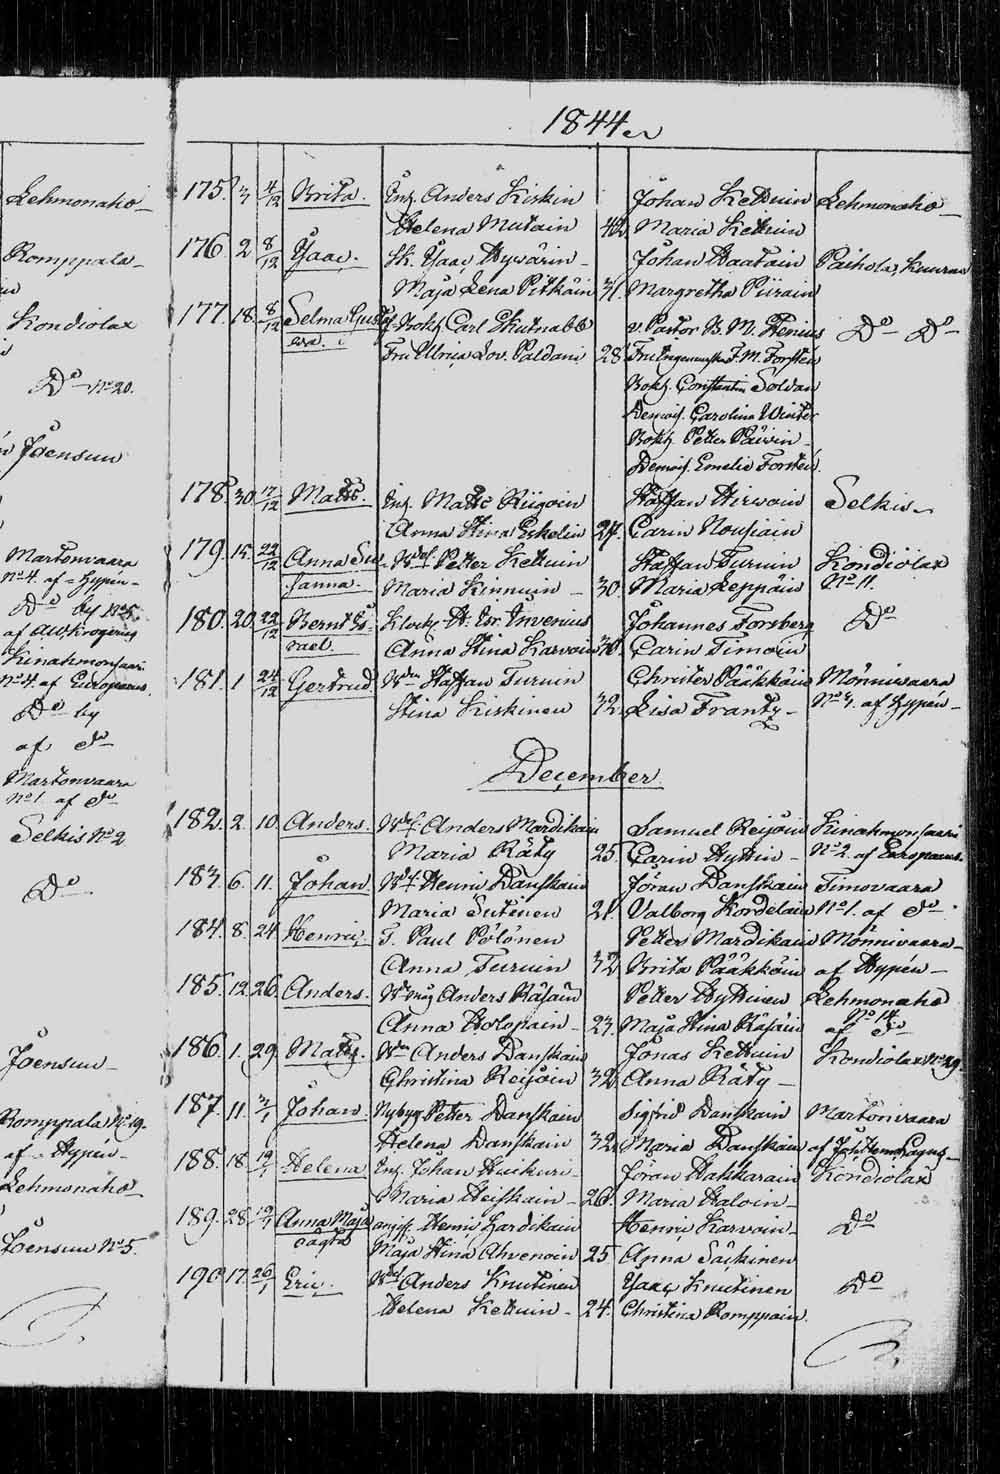 1844
Lehmonaho
Romppala
Kondiolax
Do No 20.
Joensuu
Martonvaara
No 4. af Hypén
Do by No 5.
af
Kinahmonsaari
No 4. af Europaeus.
Do by
af do
Martonvaara
No 1. af do
Selkis No 2
Do
Joensuu
Romppala No 19.
af Hypén
Lehmonaho
Joensuu No 5.
175. 3 4/12 Brita. Inh. Anders Kiskin Johan Kettuin Lehmonaho
Helena Mutain 42. Maria Kettuin
176. 2 8/12 Isaac. Sk. Isaac Hywärin Johan Haatain Paihola,
Maja Lena Pitkäin 31. Margretha Piirain
177. 18. 8/12 Selma Gust Bokh. Carl Skutnabb v. Pastor B. M. Stenius Do Do
ava. Fru Ulrica Lov. Paldani 28. Fru F. M. Forstén
Bokh. Constantin Soldan
Demois. Carolina Winter
Bokh. Petter Päivin
Demois. Emelie Forstén
178. 30. 17/12 Matts. Inh. Matts Riigoin Staffan Hirwoin Selkis
Anna Stina Eskelin 27. Carin Nousiain
179. 15. 22/12 Anna Su Petter Kettuin Staffan Turuin Kondiolax
sanna. Maria Kinnuin 30. Maria Leppäin No 11.
180. 20. 22/12 Bernt Is Klock. H. Esr. Invenius Johannes Forsberg Do
rael. Anna Stina Karvoin 30. Carin Timoin
181. 1 24/12 Gertrud Staffan Turuin Christer Pääkkäin Mönnivaara
Stina Kiskinen 32. Lisa Frantz No 3. af Hypén
December
182. 2. 10. Anders. Anders Mardikain Samuel Reijoin Kinahmonsaari
Maria Räty 25. Carin Hyttin No 2. af Europaeus.
183. 6. 11. Johan Henric Danskain Jöran Danskain Timovaara
Maria Sutinen 21. Valborg Kordelain No 1. af do
184. 8. 24 Henric. T. Paul Pölönen Petter Mardikain Mönnivaara
Anna Turuin 32 Brita Pääkköin af Hypén
185. 12. 26. Anders. måg Anders Räsäin Petter Hyttinen Lehmonaho
Anna Holopain 23. Maja Stina Räsäin No 14.
af do
186. 1. 29. Matts. Anders Danskain Jonas Kettuin Kondiolax No 29.
Christina Reijoin 32. Anna Räty
187. 11. 3/1 Johan Nybyg. Petter Danskain Sigfrid Danskain Martonvaara
Helena Danskain 32. Maria Danskain af
188. 18. 19/1 Helena Inh. Johan Huikuri Jöran Hakkarain Kondiolax
Maria Heiskain 26. Maria Haloin
189. 28. 19/1 Anna Maja Henric Hardikain Henric Karvoin Do
oägta Maja Stina Ahvenoin 25 Anna Säikinen
190. 17. 26/1 Eric. Anders Knutinen Isaac Knutinen Do
Helena Kettuin 24. Christina Romppain.